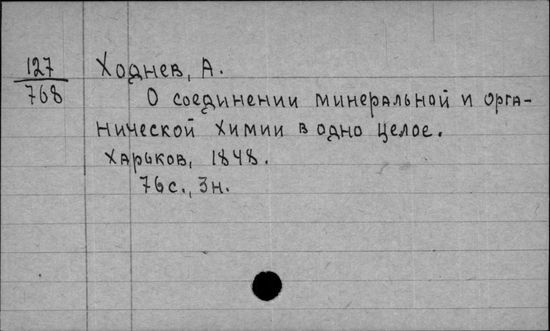 127
768
Ходнев, А.
О соединении минеральной и орга-
нической химии в одно целое.
Харьков, 1848.
76 с., 3 н.